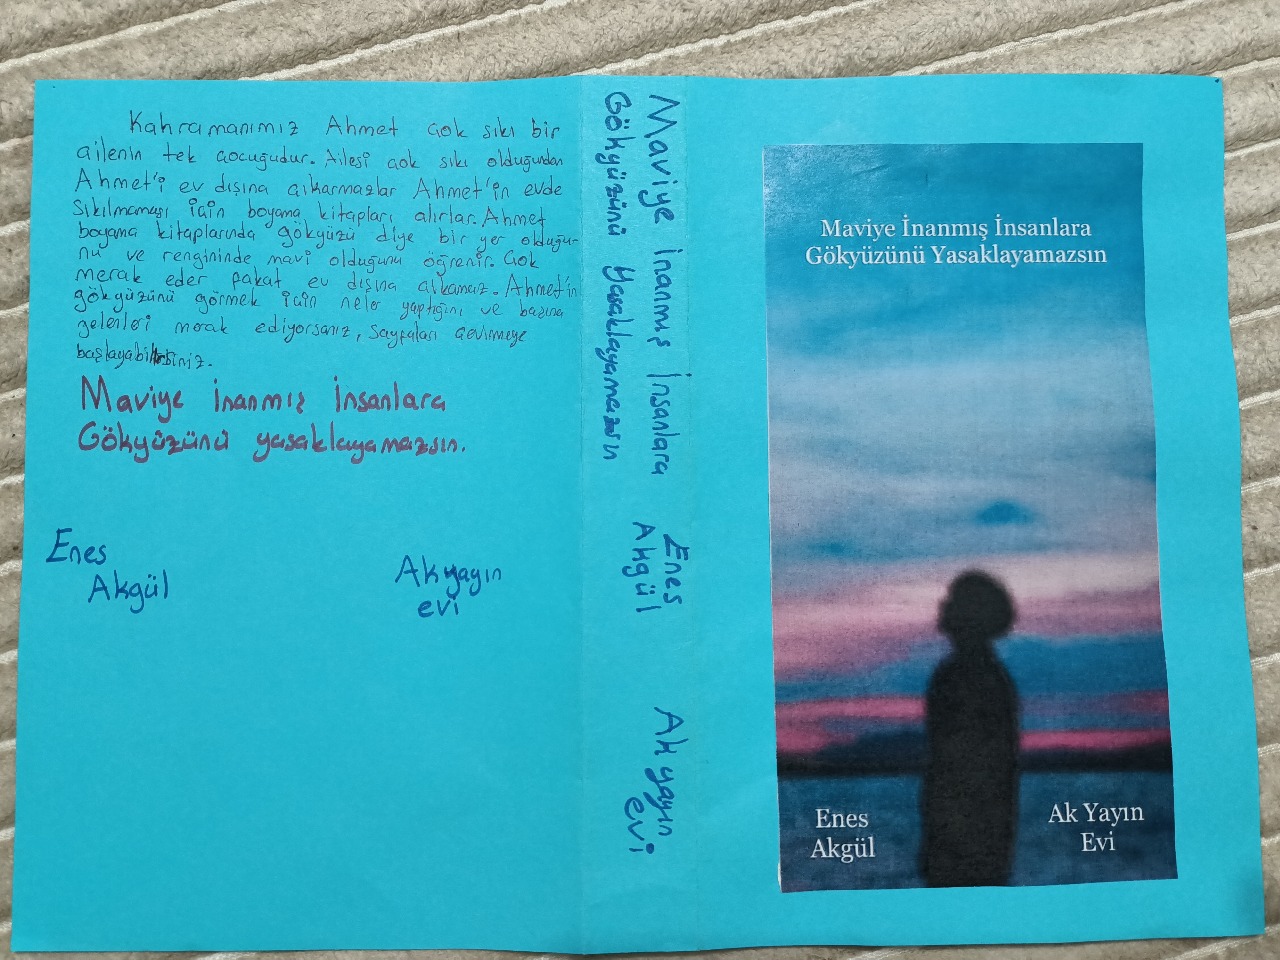 Kahramanımız Ahmet çok sıkı bir
ailenin tek çocuğudur. Ailesi çok sıkı olduğundan
Ahmet'i ev dışına çıkarmazlar Ahmet'in evde
sıkılmaması için boyama kitapları alırlar. Ahmet
boyama kitaplarında gökyüzü diye bir yer olduğu-
nu ve rengininde mavi olduğunu öğrenir. Çok
merak eder pakat ev dışına çıkamaz. Ahmet'in
gökyüzünü görmek için neler yaptığını ve başına
gelenleri merak ediyorsanız, sayfaları çevirmeye
başlayabilirsiniz.
Maviye İnanmış İnsanlara
Gökyüzünü yasaklayamazsın.
Enes
Akgül
Akyayın
evi
Maviye İnanmış İnsanlara
Gökyüzünü Yasaklayamazsın
Enes
Akgül
Akyayın
evi
Maviye İnanmış İnsanlara
Gökyüzünü Yasaklayamazsın
Enes
Akgül
Ak Yayın
Evi